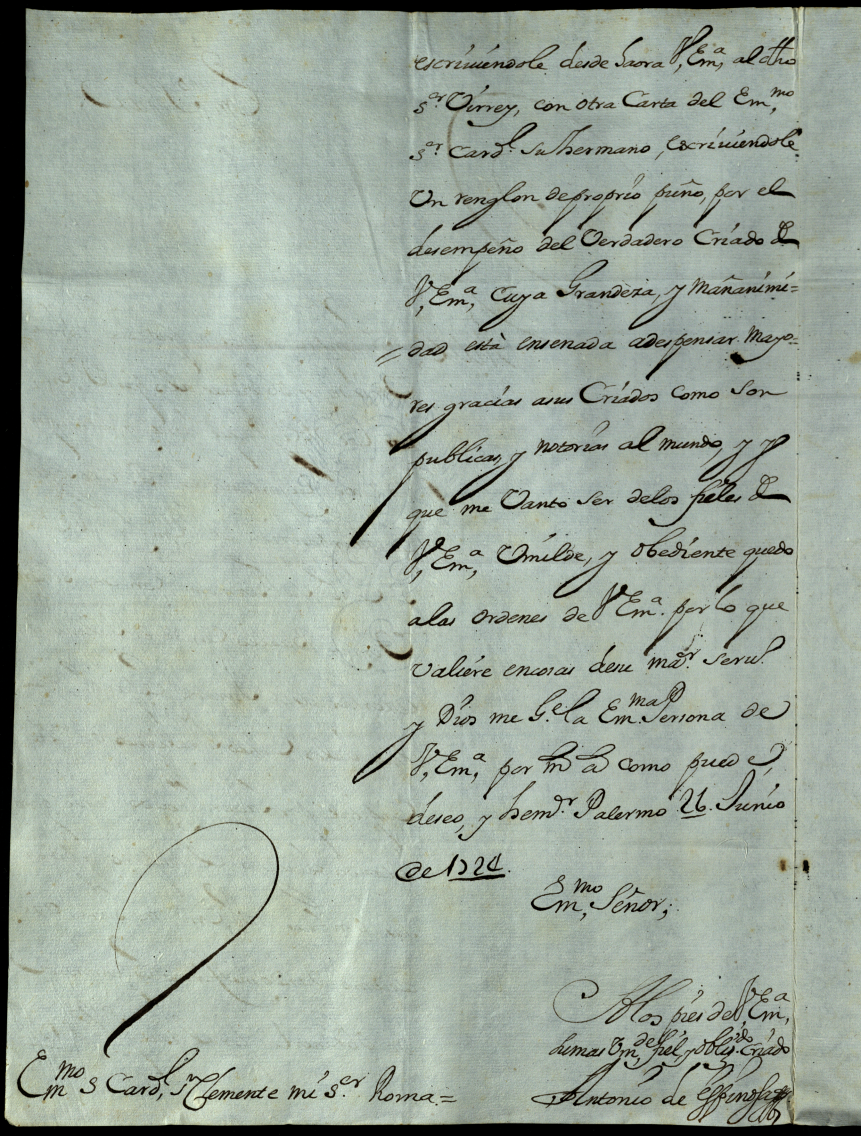 escriuiendole desde haora V. Em.ª al dho
s.or Virrey, con otra Carta del Em.mo
s.or Card.l su hermano, escriuiendole
Un renglon de proprio puño, por el
desempeño del Verdadero Criado de
V. Em.ª cuya Grandeza, y Mañanimi=
=dad està ensenada a despensar Mayo=
res gracias a sus Criados como son
publicas, y notorias al mundo, y yo
que me Vanto ser delos fieles de
V. Em.ª Umilde, y obediente quedo
alas ordenes de V. Em.ª por lo que
Valiere en cosas de su ma.r seru.º
y Dios me G.e la Em.ma Persona de
V. Em.ª por m a como puede,
deseo, y hem.r Palermo 26. Junio
de 1724.
Em.mo Señor;
A los pies de V. Em.ª
su mas Um.de fiel, y oblig.do Criado
Antonio de Espinosa
Em.mo S.r Card.l S. Clemente mi S.or Roma=